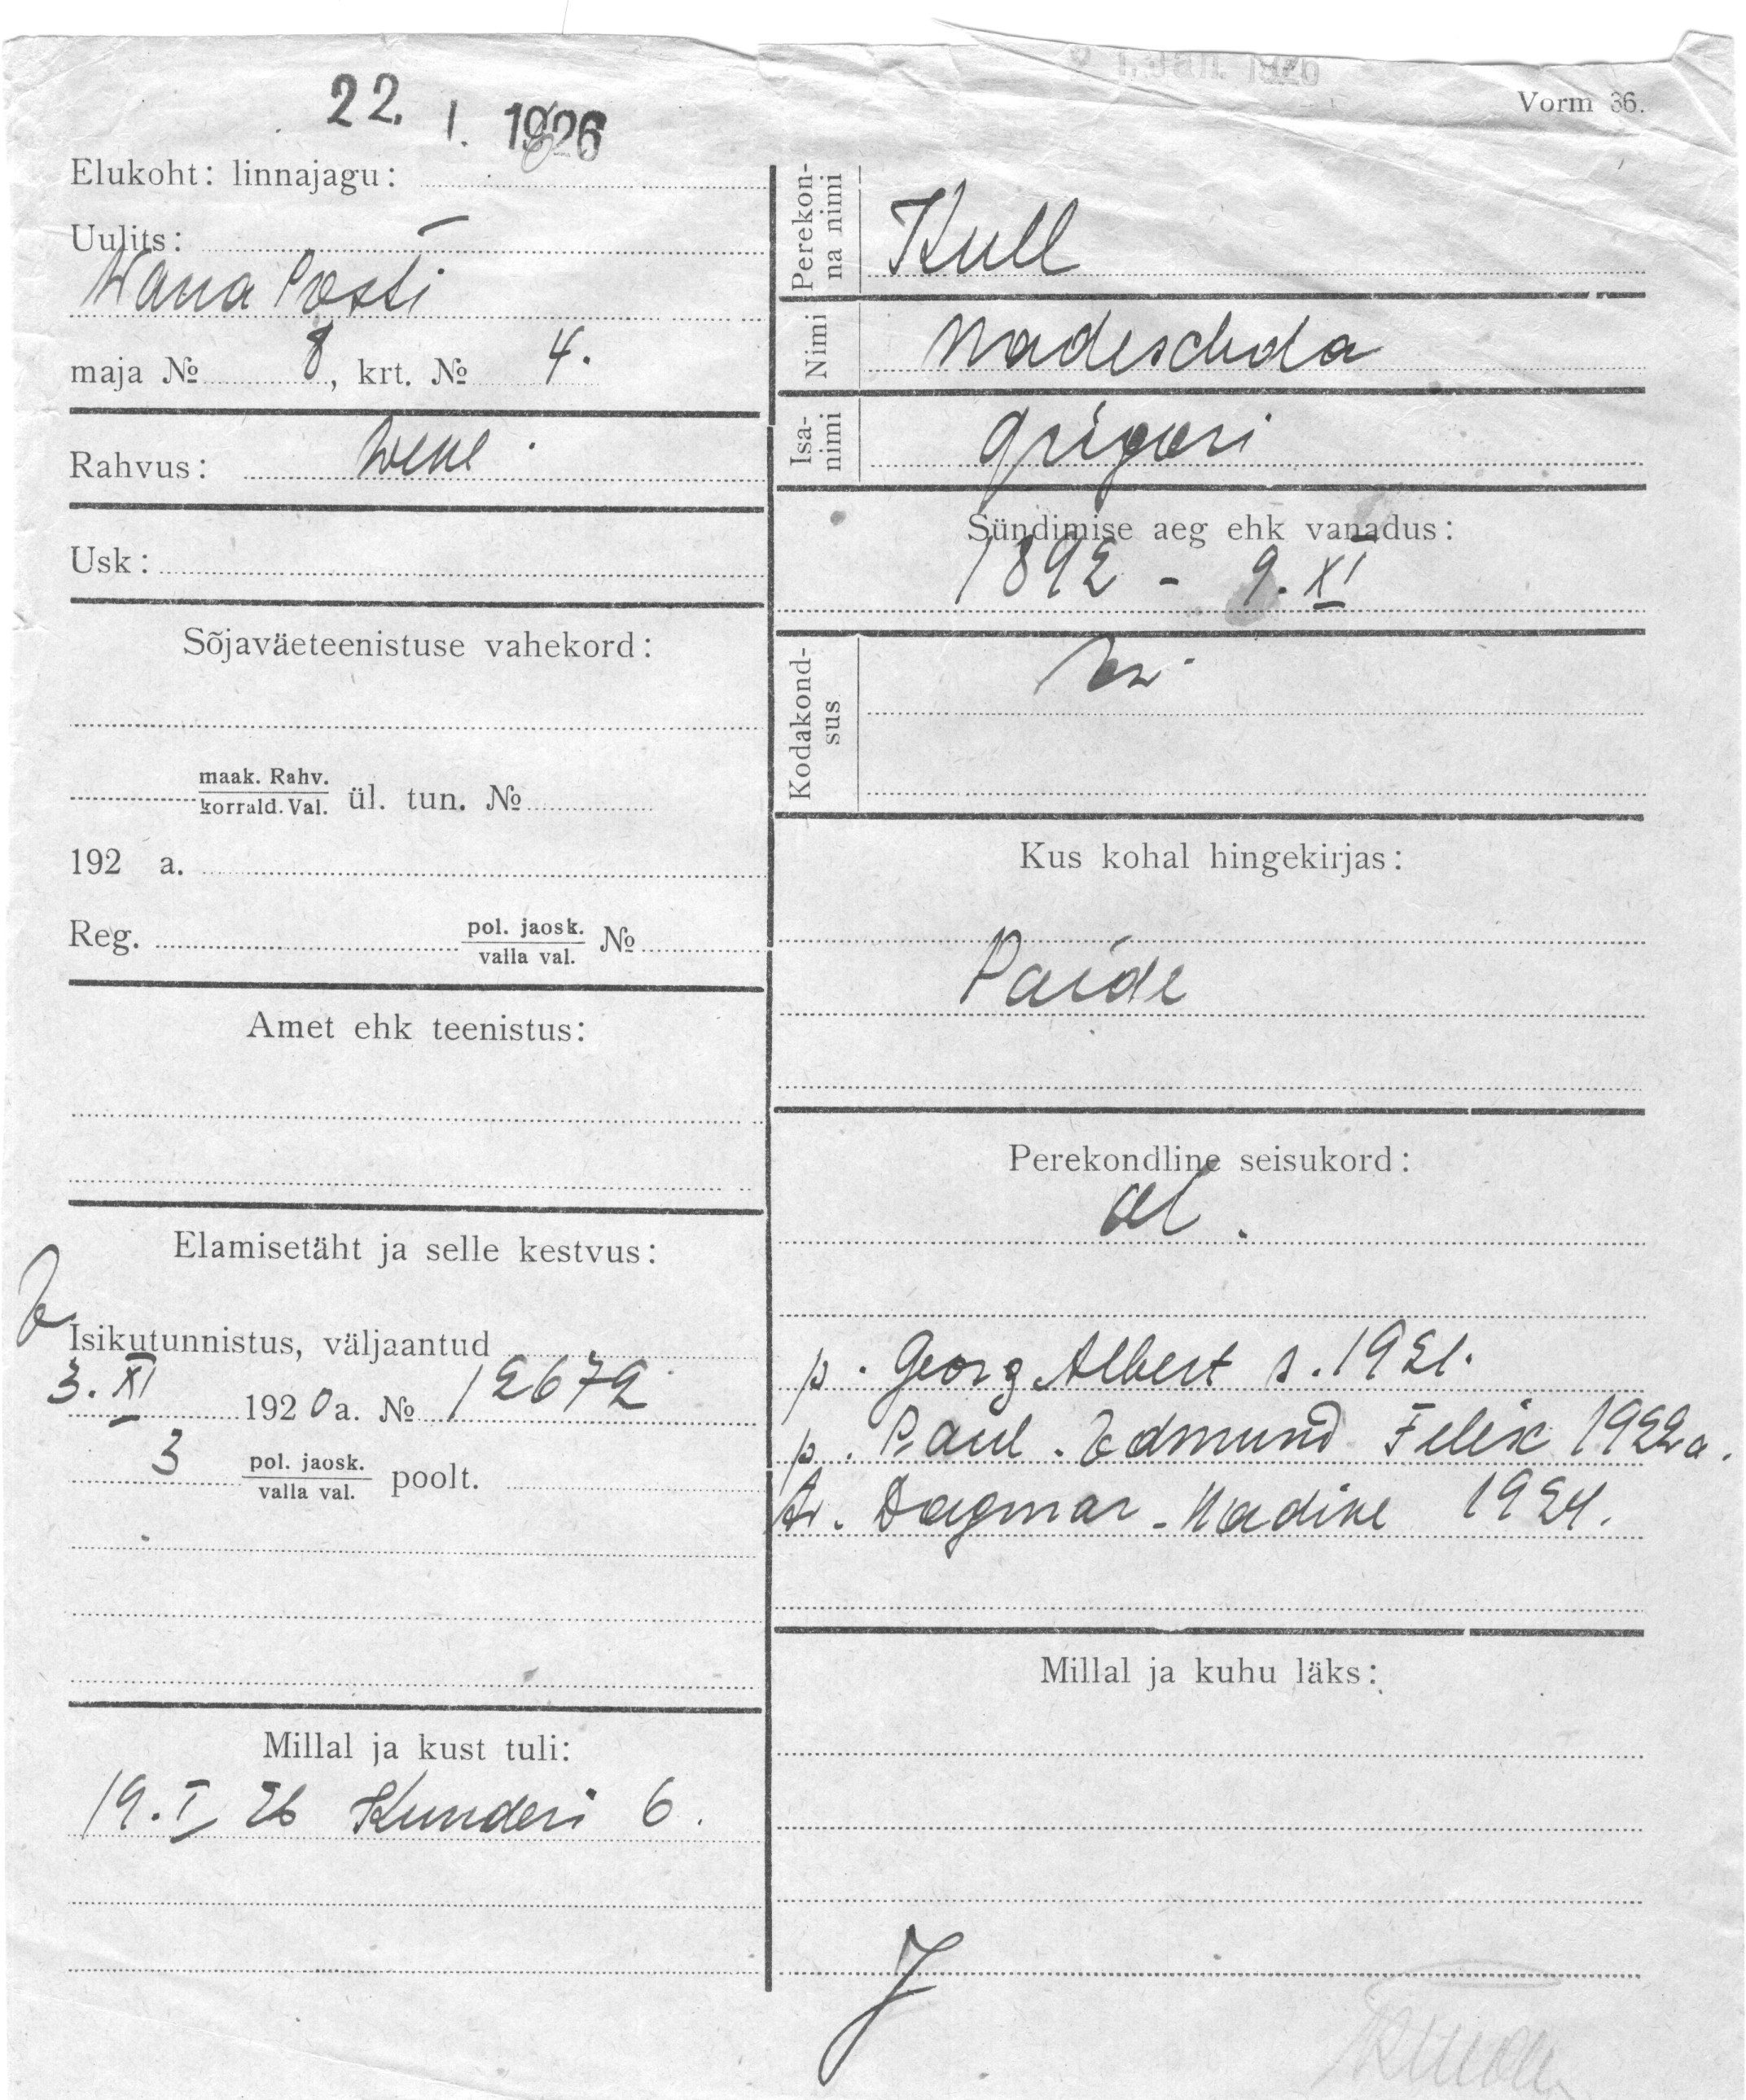 22. I. 1926
Elukoht: linnajagu:
Uulits:
Wana Posti
maja № 8, krt. № 4.
Rahvus: wene
Usk:
Sõjaväeteenistuse vahekord:
maak. Rahv.
korrald. Val. ül. tun. №
192 a.
Reg. pol. jaosk.
valla val. №
Amet ehk teenistus:
Elamisetäht ja selle kestvus:
Isikutunnistus, väljaantud
3. XI 1920 a. № 12672
3 pol. jaosk.
valla val. poolt.
Millal ja kust tuli:
19. I 26 Kunderi 6.
Vorm 36.
Perekon-
na nimi Kull
Nimi Nadeschda
Isa-
nimi Grigori
Sündimise aeg ehk vanadus:
1892 - 9. XI
Kodakond-
sus
Kus kohal hingekirjas:
Paide
Perekondline seisukord:
al.
p. Georg Albert s. 1921.
p. Paul-Edmund Felix 1922 a.
tr. Dagmar-Nadine 1924.
Millal ja kuhu läks: